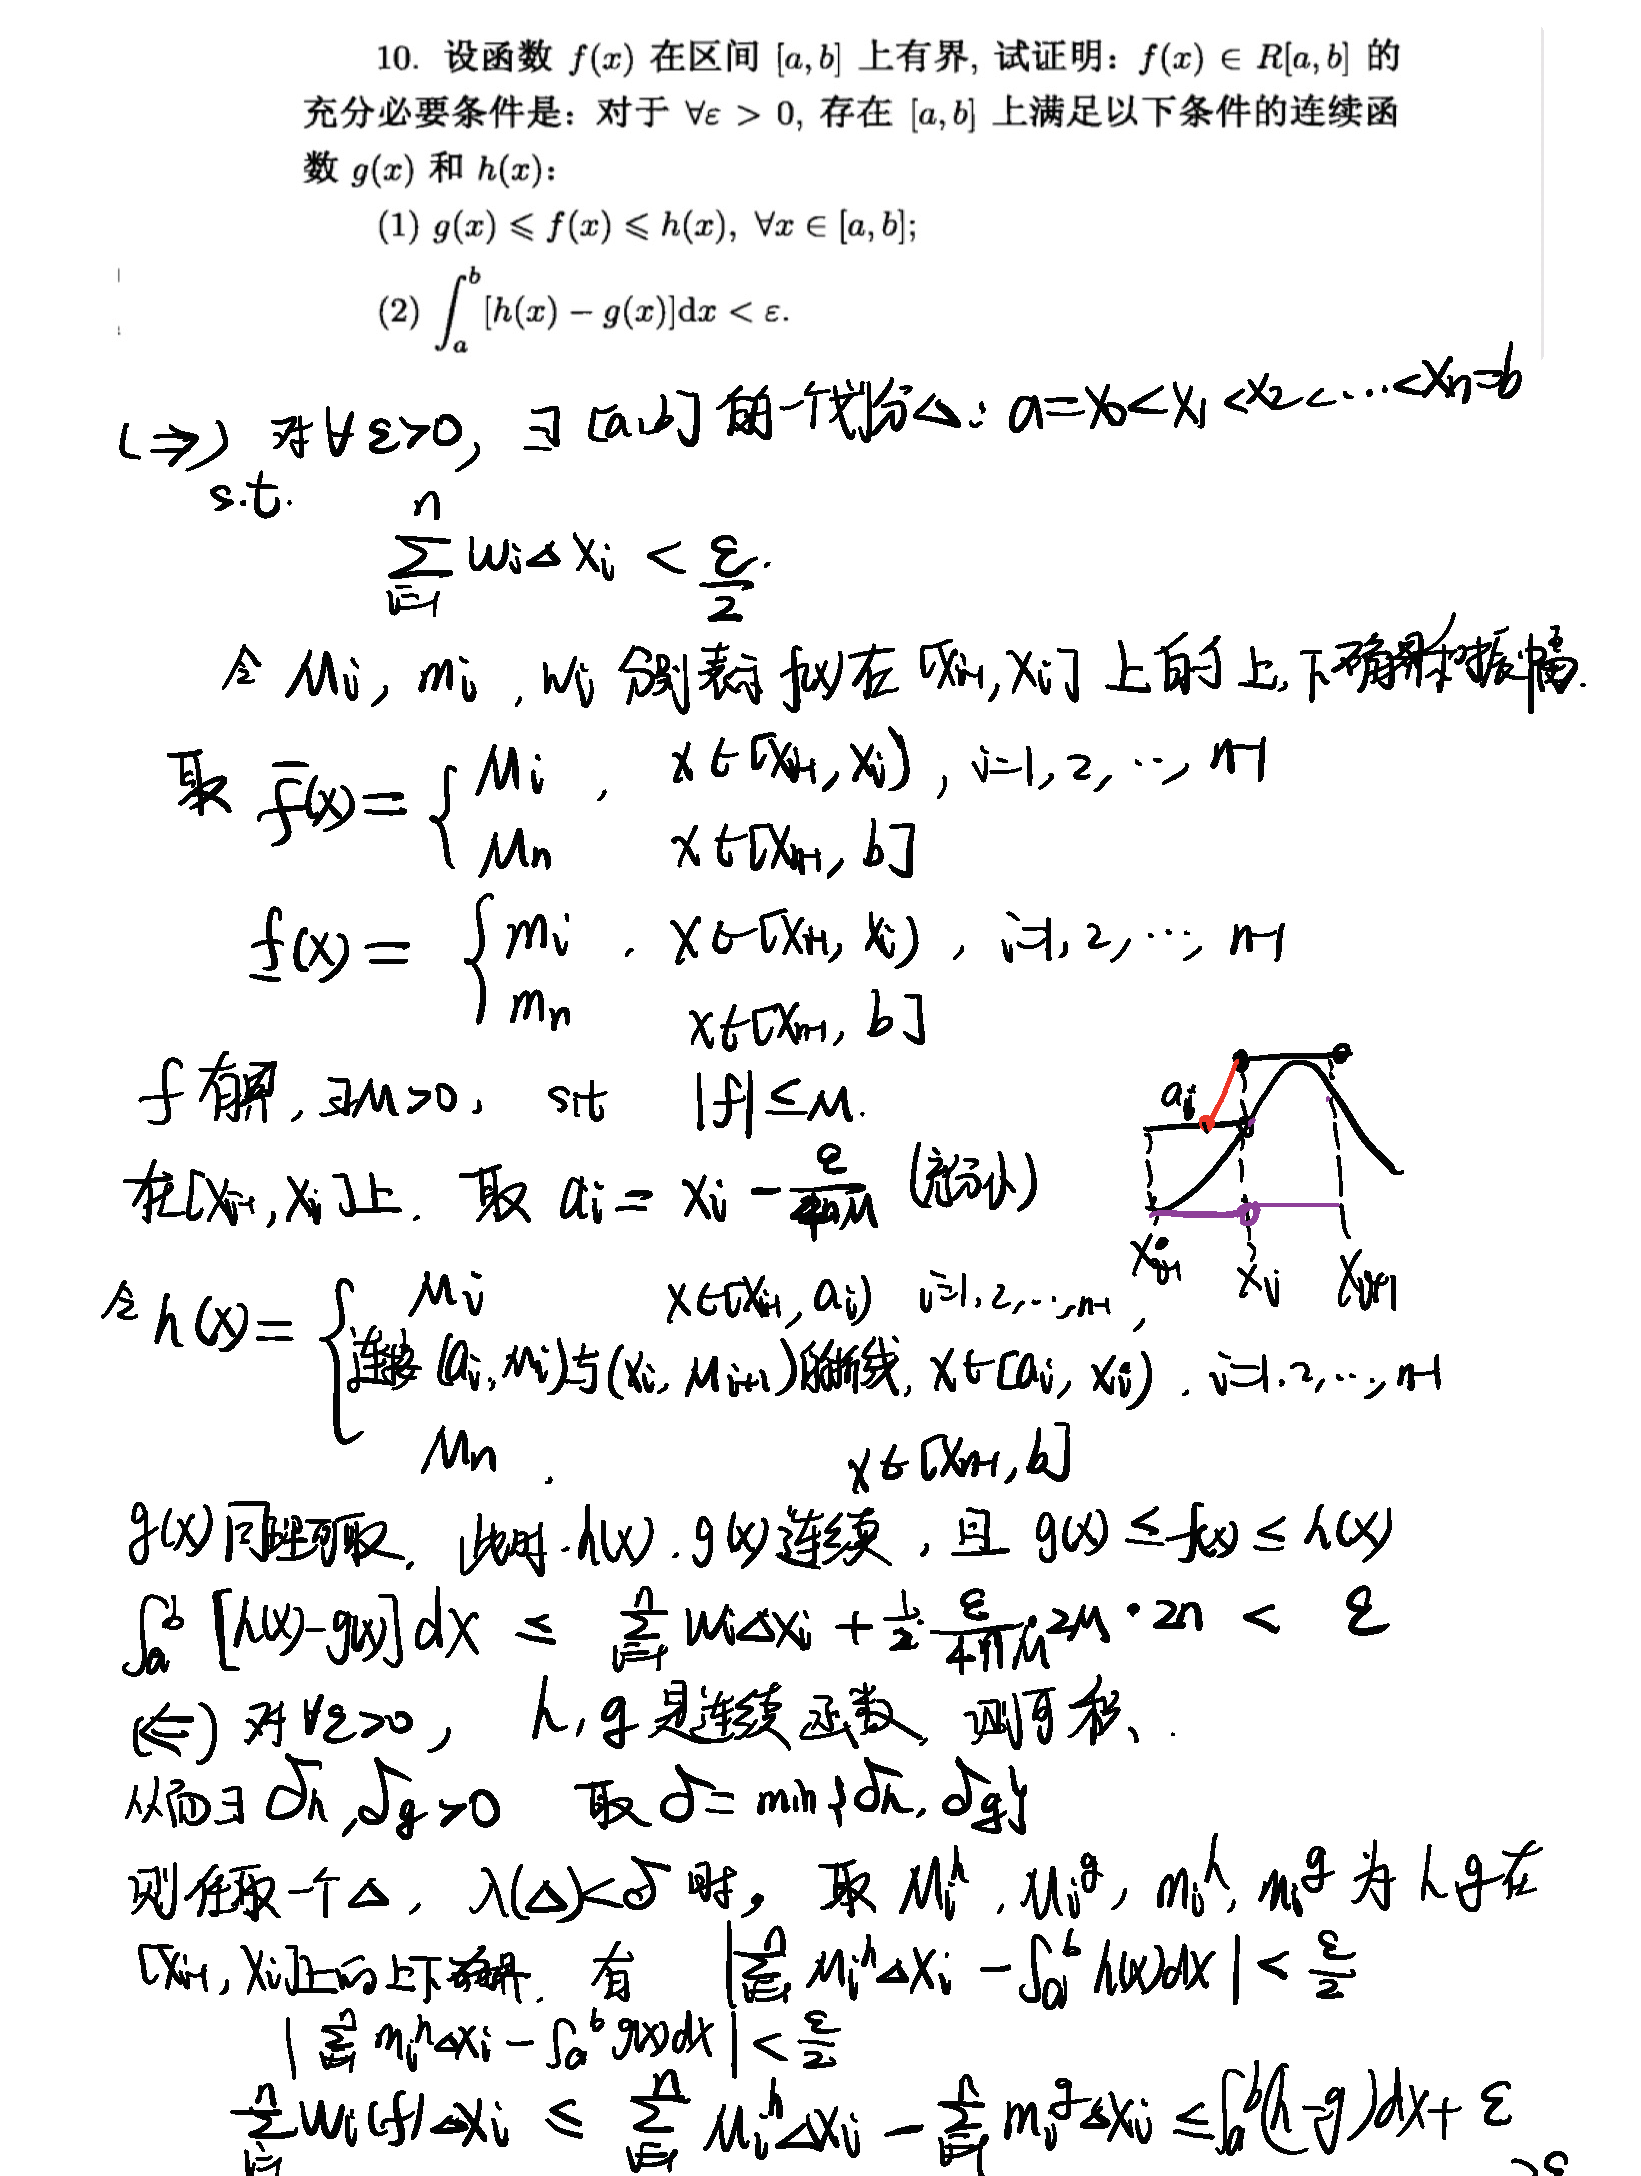 10. 设函数 f(x) 在区间 [a, b] 上有界, 试证明: f(x) ∈ R[a, b] 的
充分必要条件是: 对于 ∀ε > 0, 存在 [a, b] 上满足以下条件的连续函
数 g(x) 和 h(x):
(1) g(x) ⩽ f(x) ⩽ h(x), ∀x ∈ [a, b];
(2) ∫_a^b [h(x) − g(x)]dx < ε.
(⇒) 对∀ε>0, ∃ [a,b] 的一个划分Δ: a=x₀<x₁<x₂<…<xₙ=b
s.t.
∑_{i=1}^n wᵢΔxᵢ < ε/2.
令 Mᵢ, mᵢ, wᵢ 分别表示 f(x)在 [xᵢ₋₁, xᵢ] 上的上,下确界和振幅.
取 f̄(x)= { Mᵢ, x∈[xᵢ₋₁, xᵢ), i=1, 2, …, n-1
Mₙ x∈[xₙ₋₁, b]
f̲(x)= { mᵢ, x∈[xᵢ₋₁, xᵢ), i=1, 2, …, n-1
mₙ x∈[xₙ₋₁, b]
f 有界, ∃M>0, s.t |f|≤M.
在[xᵢ₋₁, xᵢ]上. 取 aᵢ = xᵢ − ε/4nM (充分小)
aᵢ
xᵢ₋₁ xᵢ xᵢ₊₁
令 h(x)= { Mᵢ x∈[xᵢ₋₁, aᵢ) i=1,2,…,n-1,
连接 (aᵢ, Mᵢ)与(xᵢ, Mᵢ₊₁)的折线, x∈[aᵢ, xᵢ). i=1.2,…,n-1
Mₙ. x∈[xₙ₋₁, b]
g(x)同理可取. 此时.h(x).g(x)连续, 且 g(x) ≤ f(x) ≤ h(x)
∫_a^b [h(x)-g(x)] dx ≤ ∑_{i=1}^n wᵢΔxᵢ + 1/2·ε/4nM·2M·2n < ε
(⇐) 对∀ε>0, h, g是连续函数, 则可积.
从而∃ δₕ, δ_g >0 取 δ= min{δₕ, δ_g}
则任取一个Δ, λ(Δ)<δ时, 取 Mᵢʰ, Mᵢᵍ, mᵢʰ, mᵢᵍ 为 h g在
[xᵢ₋₁, xᵢ]上的上下确界. 有 |∑_{i=1}^n MᵢʰΔxᵢ − ∫_a^b h(x)dx| < ε/2
|∑_{i=1}^n mᵢʰΔxᵢ − ∫_a^b g(x)dx| < ε/2
∑_{i=1}^n wᵢ(f)Δxᵢ ≤ ∑_{i=1}^n MᵢʰΔxᵢ − ∑_{i=1}^n mᵢᵍΔxᵢ ≤ ∫_a^b(h-g)dx + ε